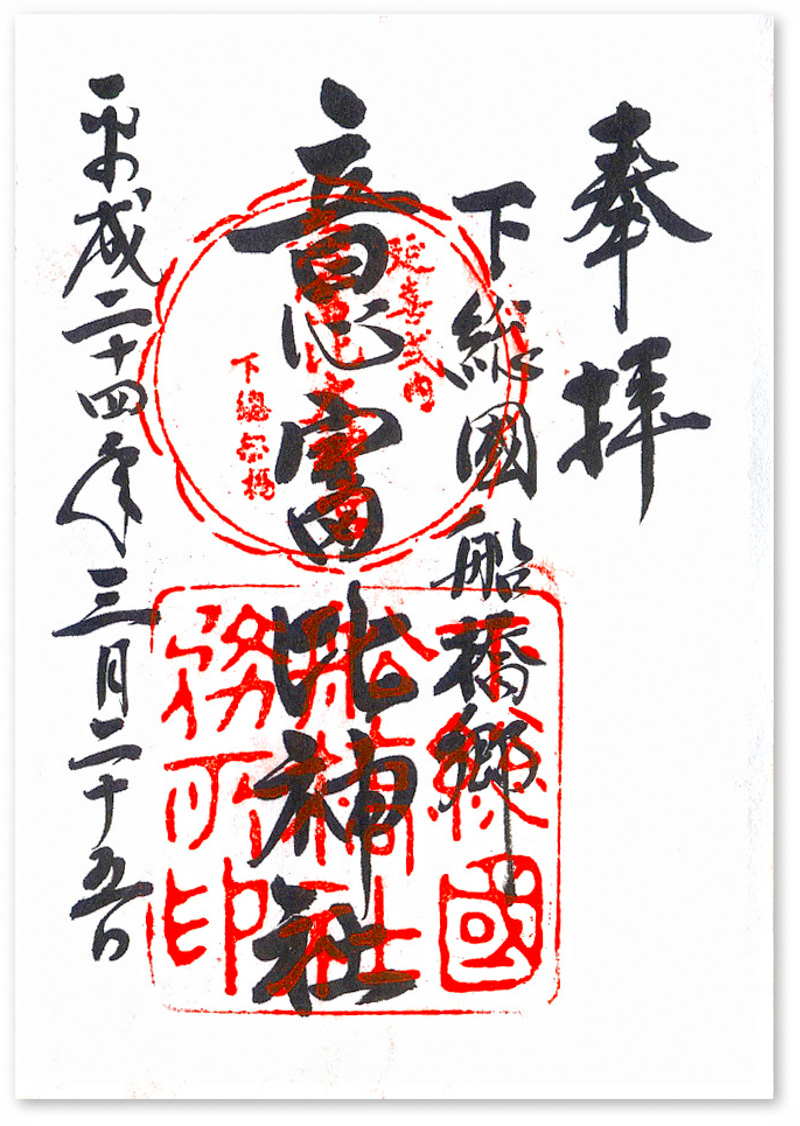 奉拝
下総國船橋郷
意富比神社
平成二十四年三月二十五日
延喜式内
下總船橋
下総國
船橋社
務所印